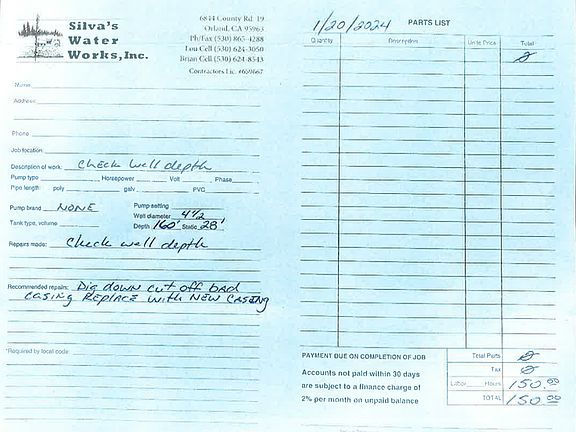 Silva's
Water
Works, Inc.
6844 County Rd. 19
Orland, CA 95963
Ph/Fax (530) 865-4288
Lou Cell (530) 624-3050
Brian Cell (530) 624-8543
Contractors Lic. #669667
Name:
Address:
Phone
Job location:
Description of work: Check well depth
Pump type Horsepower Volt Phase
Pipe length: poly galv PVC
Pump brand NONE Pump setting
Well diameter 4 1/2
Tank type, volume Depth 160' Static 28'
Repairs made: Check well depth
Recommended repairs: Dig down cut off bad
casing Replace with NEW CASING
*Required by local code:
1/20/2024 PARTS LIST
Quantity Description Unite Price Total
Ø
PAYMENT DUE ON COMPLETION OF JOB
Accounts not paid within 30 days
are subject to a finance charge of
2% per month on unpaid balance
Total Parts Ø
Tax Ø
Labor Hours 150.00
TOTAL 150.00